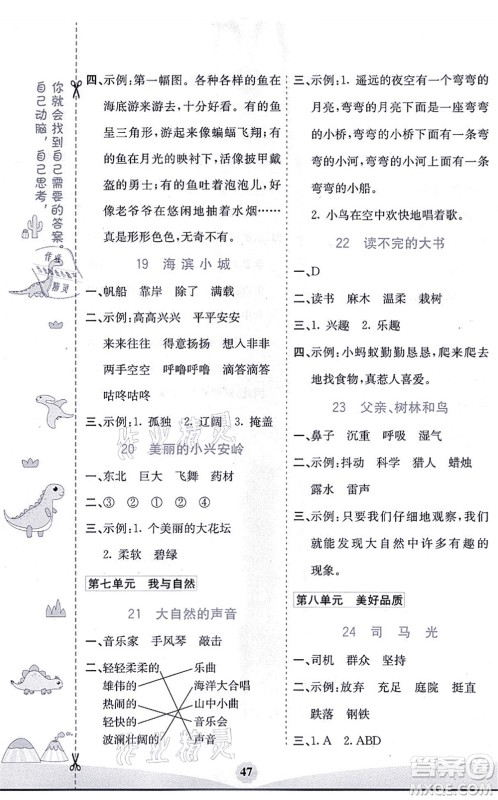 你就会找到自己需要的答案。
自己动脑，自己思考，
四、示例：第一幅图。各种各样的鱼在
海底游来游去，十分好看。有的鱼
呈三角形，游起来像蝙蝠飞翔；有
的鱼在月光的映衬下，活像披甲戴
盔的勇士；有的鱼吐着泡泡儿，好
像老爷爷在悠闲地抽着水烟……
真是形形色色，无奇不有。
19 海滨小城
一、帆船 靠岸 除了 满载
二、示例：高高兴兴 平平安安
来来往往 得意扬扬 想入非非
两手空空 呼噜呼噜 滴答滴答
咕咚咕咚
三、示例：1. 孤独 2. 辽阔 3. 掩盖
20 美丽的小兴安岭
一、东北 巨大 飞舞 药材
二、③ ① ② ④
三、示例：1. 个美丽的大花坛
2. 柔软 碧绿
第七单元 我与自然
21 大自然的声音
一、音乐家 手风琴 敲击
二、轻轻柔柔的 乐曲
雄伟的 海洋大合唱
热闹的 山中小曲
轻快的 音乐会
波澜壮阔的 呢喃细语
三、示例：1. 遥远的夜空有一个弯弯
的月亮，弯弯的月亮下面有一座弯弯
的小桥，弯弯的小桥下面有一条弯
弯的小河，弯弯的小河上有一条弯
弯的小船。
2. 小鸟在空中欢快地唱着歌。
22 读不完的大书
一、D
二、读书 麻木 温柔 栽树
三、1. 兴趣 2. 乐趣
四、示例：小蚂蚁勤勤恳恳，爬来爬去
地找食物，真惹人喜爱。
23 父亲、树林和鸟
一、鼻子 沉重 呼吸 湿气
二、示例：抖动 科学 猎人 蜡烛
露水 雷声
三、示例：只要我们仔细地观察，我们
就能发现大自然中许多有趣的
现象。
第八单元 美好品质
24 司马光
一、司机 群众 坚持
二、示例：放弃 充足 庭院 挺直
跌落 钢铁
三、1. A 2. ABD
47
作业精灵